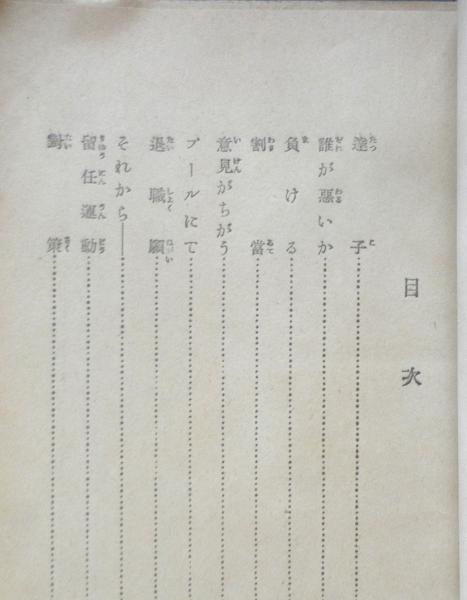 目次
達子
誰が悪いか
負ける
割當
意見がちがう
プールにて
退職願
それから――
留任運動
對策